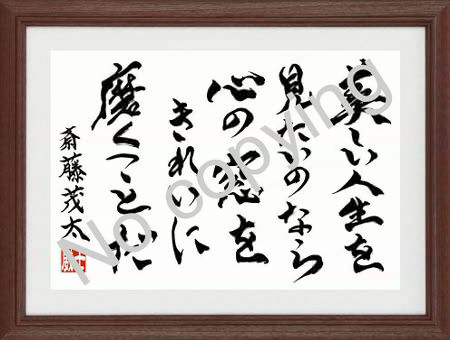 美しい人生を
見たいのなら
心の窓を
きれいに
磨くことだ
斎藤茂太
No copying